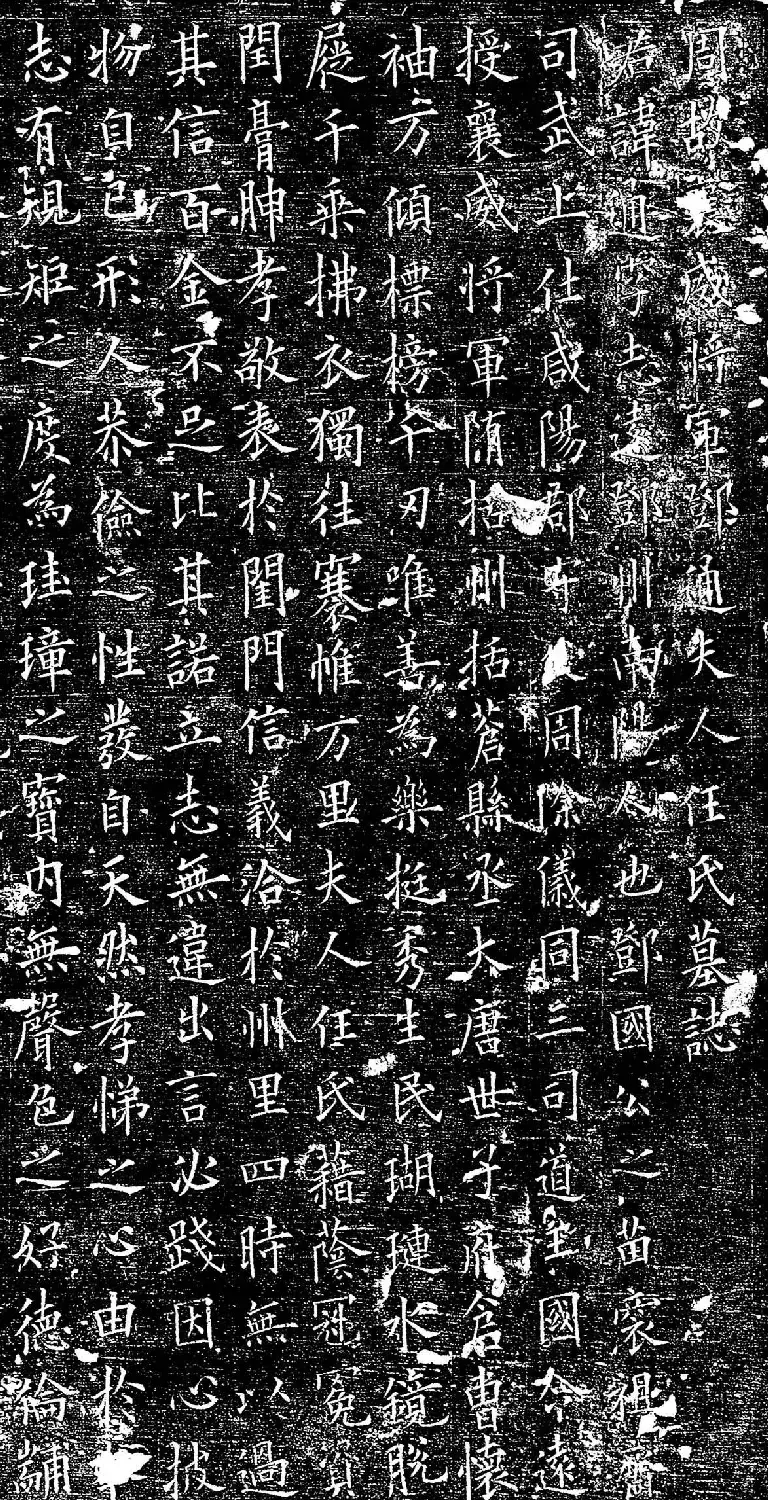 周故襄威將軍鄧通夫人任氏墓誌
君諱通字志遠鄧州南陽人也鄧國公之苗裔祖齊
司武上仕咸陽郡守父周除儀同三司道𡊮國令遠
授襄威將軍隨括州括蒼縣丞大唐世子府倉曹懷
袖方傾標榜千刃唯善為樂挺秀生民瑚璉水鏡脫
屣千乘拂衣獨往褰帷百里夫人任氏藉蔭冠冕資
閏膏腴孝敬表於閨門信義洽於州里四時無以過
其信百金不足比其諾立志無違出言必踐因心披
物自已形人恭儉之性發自天然孝悌之心由於
志有規矩之度為珪璋之寶內無聲色之好德綸黼